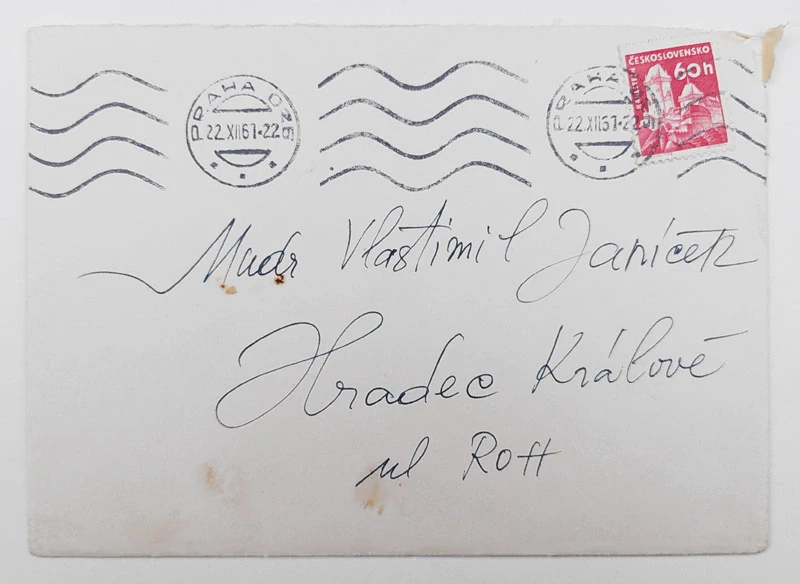 PRAHA 026
22.XII61-22
PRAHA
22.XII61-22
ČESKOSLOVENSKO
60h
KARLŠTEJN
Mudr Vlastimil Janíček
Hradec Králové
ul ROH